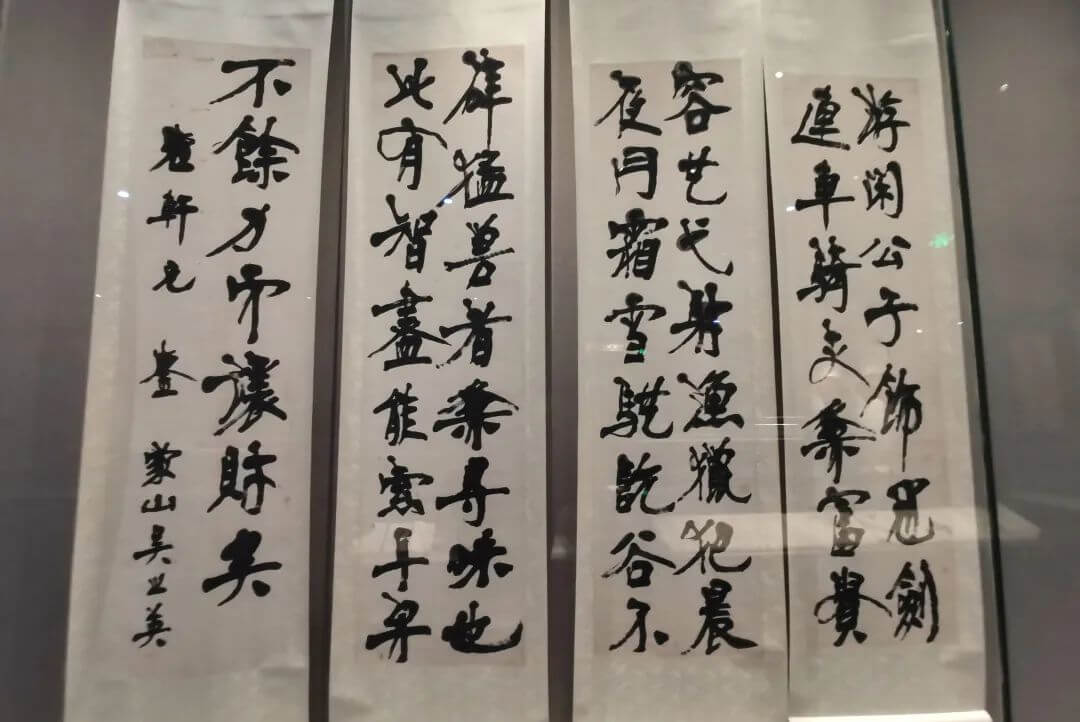 游闲公子飾冠劍
連車騎亦為富貴
容也弋射漁獵犯晨
夜冒霜雪馳阬谷不
避猛兽者為得味也
此有智盡能索耳終
不餘力而讓財矣
軒兄 鑒 蒙山吳之英